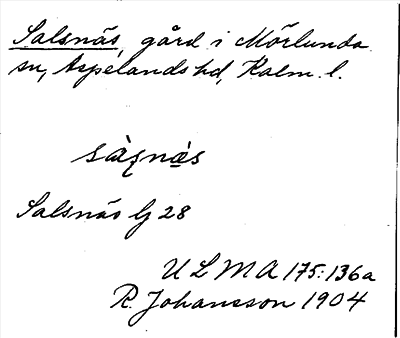 Salsnäs, gård i Mörlunda
sn, Aspelands hd, Kalm. l.
Salsnäs Gj 28
U L M A 175:136a
R. Johansson 1904